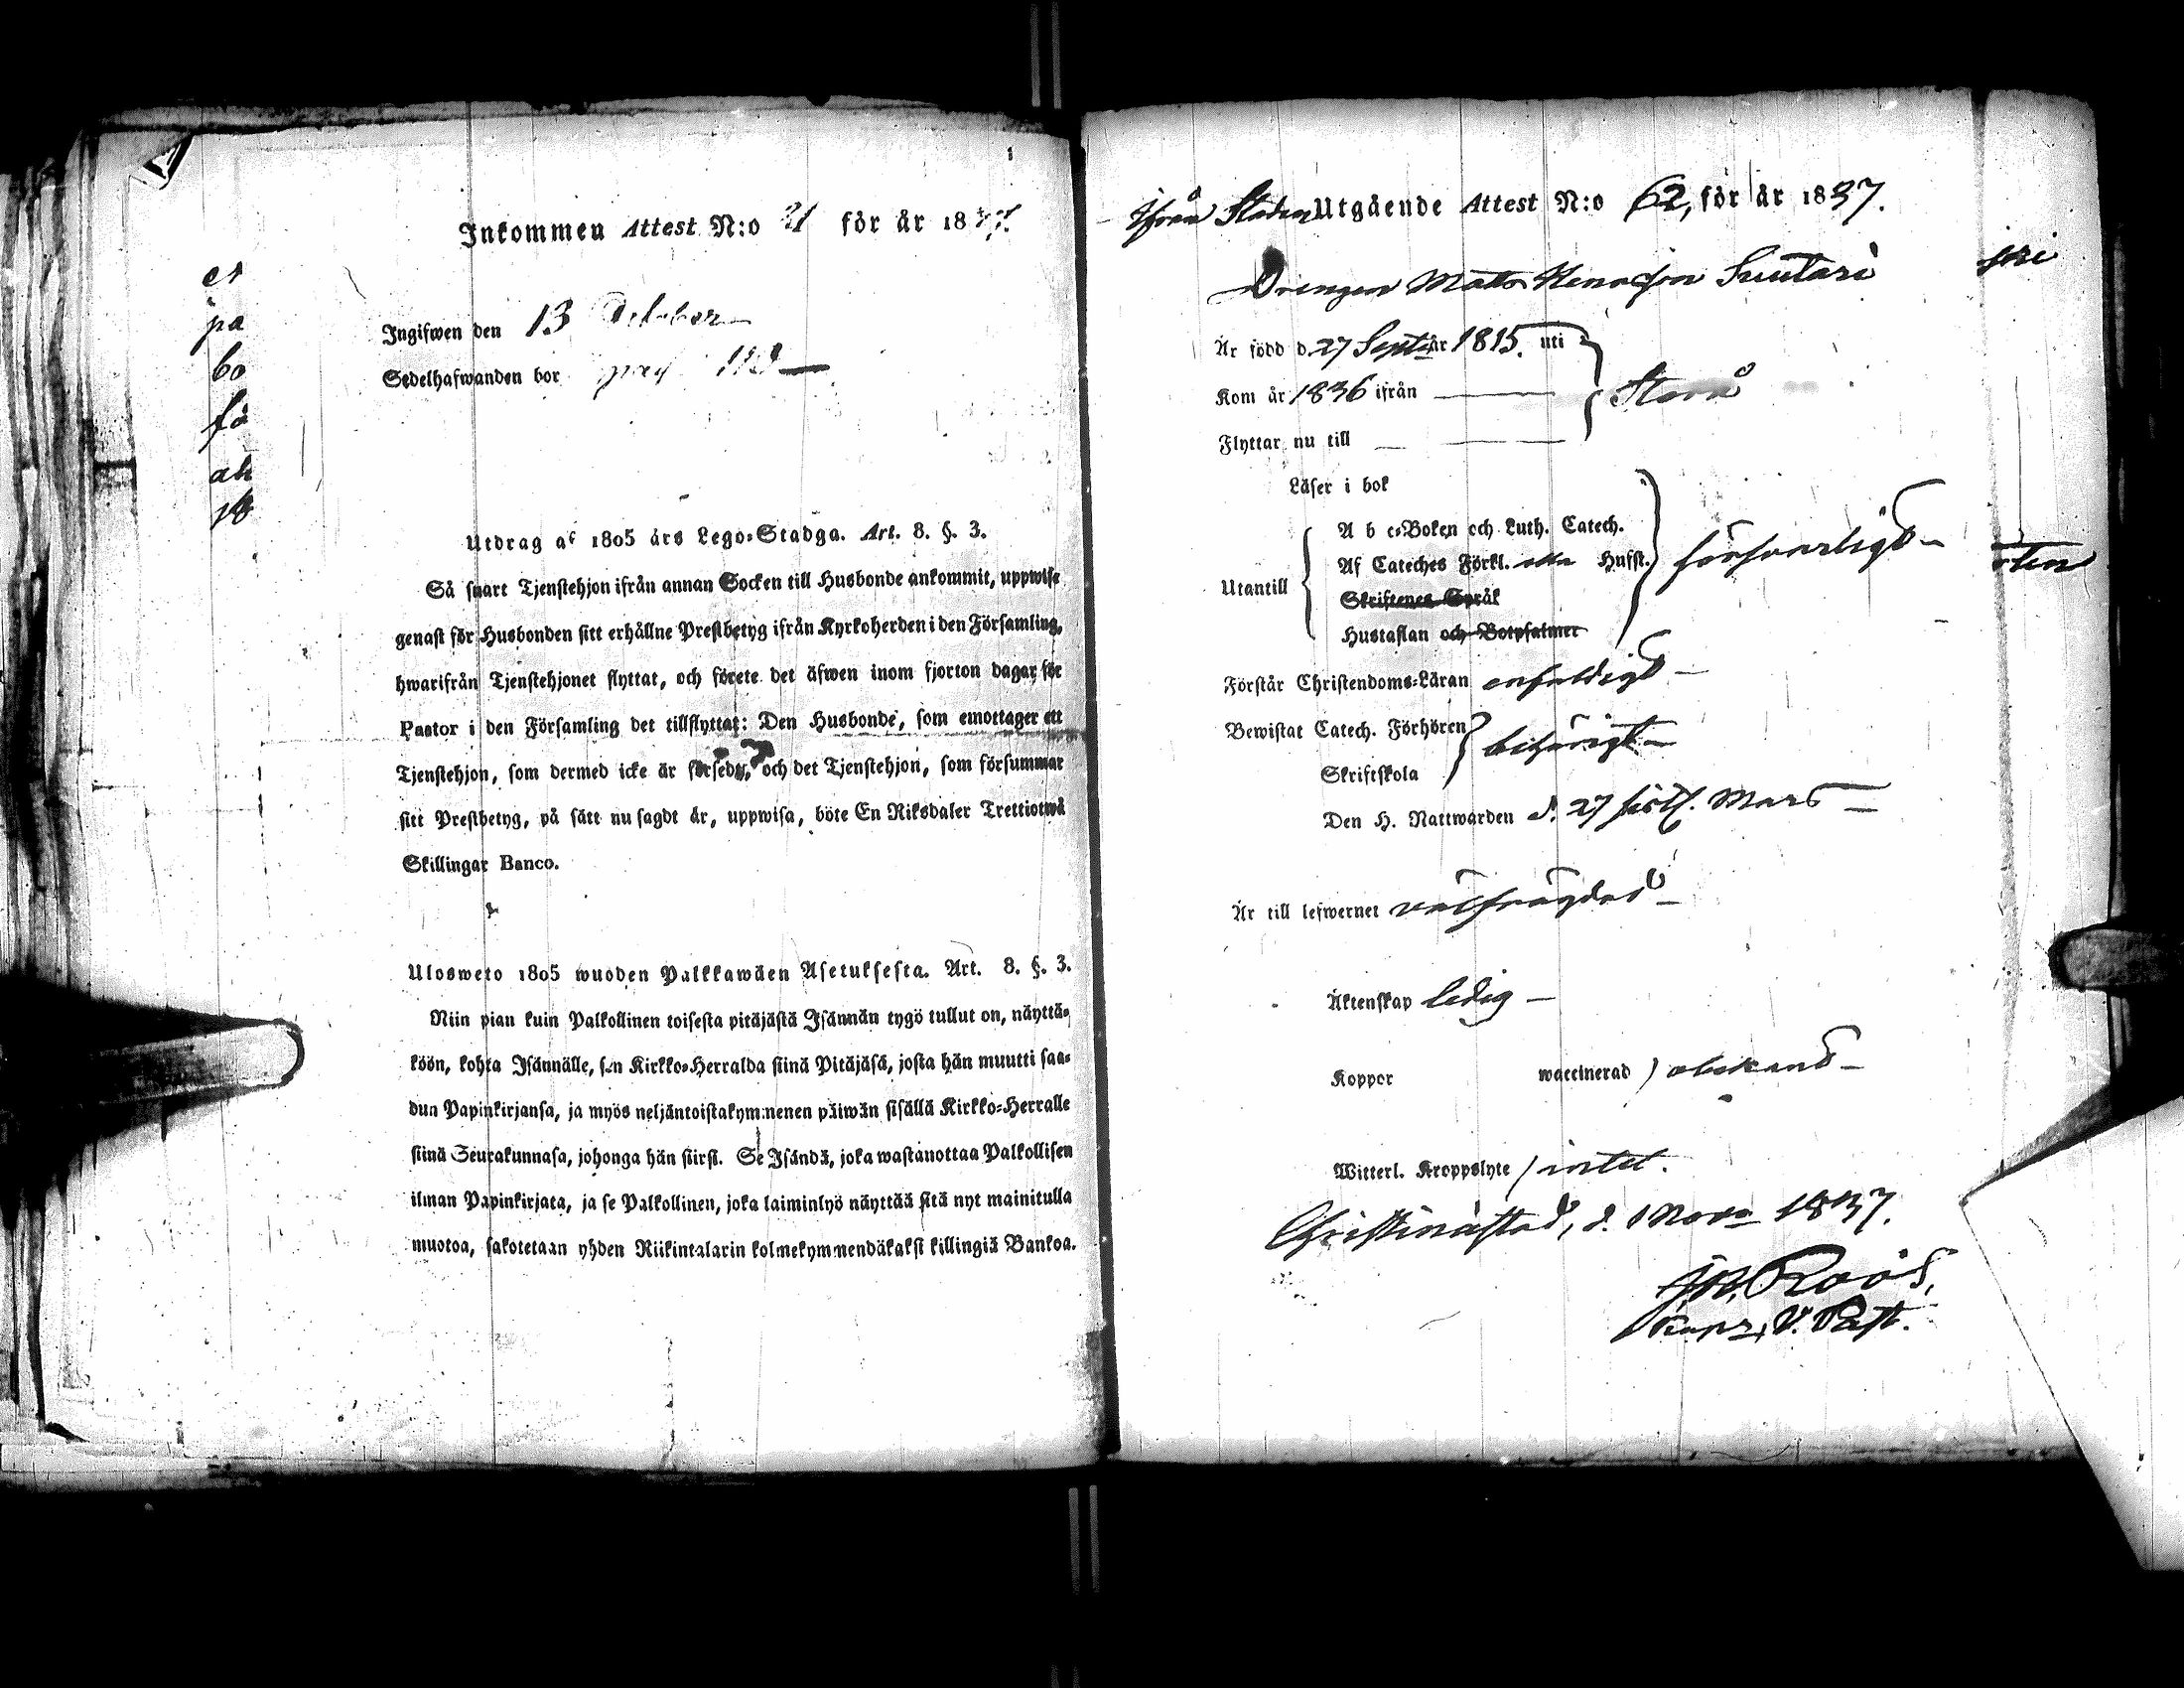 Inkommen Attest N:o 21 för år 18
Ingifwen den 13 October
Sedelhafwanden bor pag
Utdrag af 1805 års Lego-Stadga. Art. 8. §. 3.
Så snart Tjenstehjon ifrån annan Socken till Husbonde ankommit, uppwise
genast för Husbonden sitt erhållne Prestbetyg ifrån Kyrkoherden i den Församling,
hwarifrån Tjenstehjonet flyttat, och förete det äfwen inom fjorton dagar för
Pastor i den Församling det tillflyttat: Den Husbonde, som emottager ett
Tjenstehjon, som dermed icke är försedt, och det Tjenstehjon, som försummar
sitt Prestbetyg, på sätt nu sagdt är, uppwisa, böte En Riksdaler Trettiotwå
Skillingar Banco.
Ulosweto 1805 wuoden Palkkawäen Asetuksesta. Art. 8. §. 3.
Niin pian kuin Palkollinen toisesta pitäjästä Isännän tygö tullut on, näyttä-
köön, kohta Isännälle, sen Kirkko-Herralda siinä Pitäjäsä, josta hän muutti saa-
dun Papinkirjansa, ja myös neljäntoistakymmenen päiwän sisällä Kirkko-Herralle
siinä Seurakunnasa, johonga hän siirsi. Se Isändä, joka wastanottaa Palkollisen
ilman Papinkirjata, ja se Palkollinen, joka laiminlyö näyttää sitä nyt mainitulla
muotoa, sakotetaan yhden Riikintalarin kolmekymmendäkaksi killingiä Bankoa.
et
pa
bo
få
ah
18
Ifrån Staden Utgående Attest N:o 62, för år 1837.
Drengen Matts Henricsson Suutari
Är född d. 27 Septr år 1815. uti
Kom år 1836 ifrån Storå
Flyttar nu till
Läser i bok
A b c-Boken och Luth. Catech.
Af Cateches Förkl. Husst. försvarligt
Utantill
Skriftenes Språk
Hustaflan och Botpsalmer
Förstår Christendoms-Läran enfaldigt
Bewistat Catech. Förhören behörigt
Skriftskola
Den H. Nattwarden d. 27 sistl. Mars
Är till lefwernet välfrägdad
Äktenskap ledig
Koppor waccinerad obekant
Witterl. Kroppslyte intet.
Christinæstad, d. 1 Novr 1837.
J.R. Roos,
V. Past.